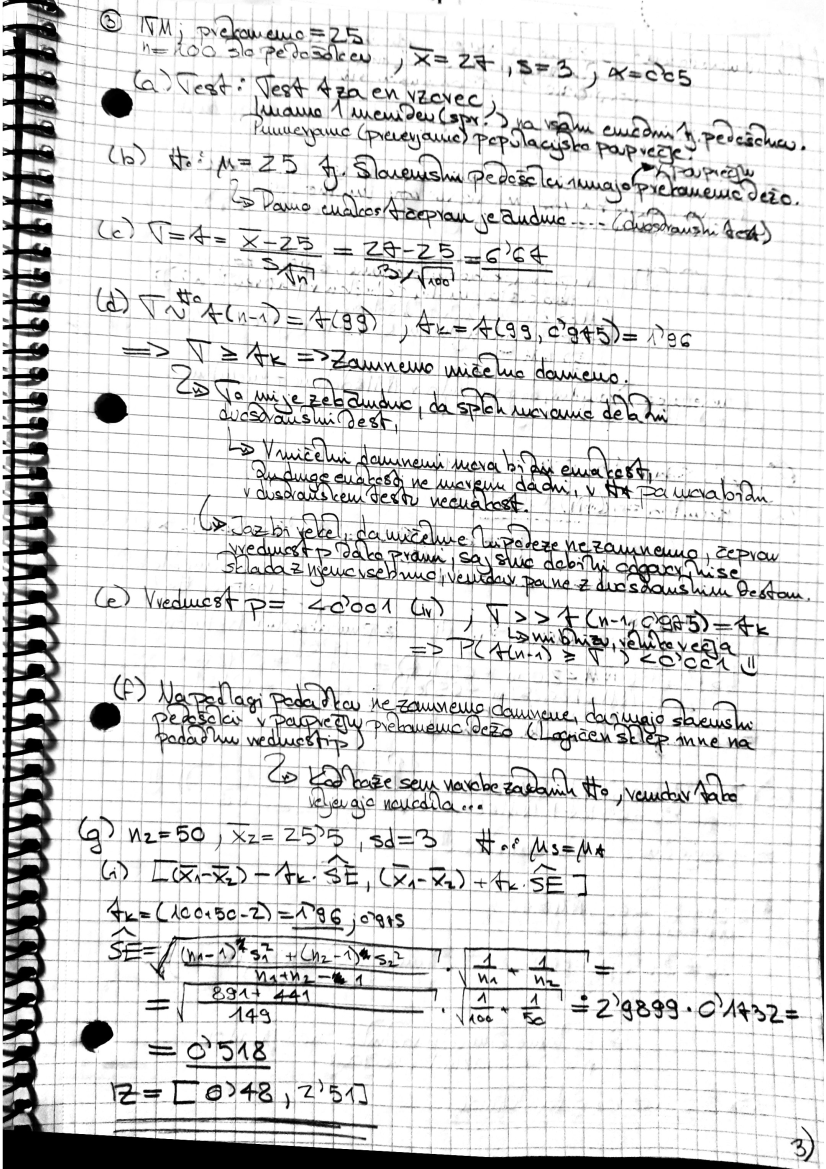 ③ ITM; prekomerno = 25
n = 100 slo pedošolcev, x̄ = 27, s = 3, α = 0'05
(a) Test: Test t za en vzorec,
Imamo 1 meritev (spr.) na vsaki enoti tj. pedošolcu.
(preverjamo) populacijsko povprečje.
(b) H₀: μ = 25 tj. Slovenski pedošolci imajo v povprečju prekomerno težo.
↳ Damo enakost čeprav je čudno .... (dvostranski test)
(c) T = t = (x̄ - 25) / (s/√n) = (27 - 25) / (3/√100) = 6'67
(d) T ~H₀ t(n-1) = t(99), tₖ = t(99, 0'975) = 1'96
=> T ≥ tₖ => Zavrnemo ničelno domnevo.
↳ To mi je zelo čudno, da sploh moramo delati
dvostranski test,
↳ V ničelni domnevi mora biti enakost,
drugje enakosti ne moremo dati, v Hₐ pa mora biti
v dvostranskem testu neenakost.
↳ Jaz bi rekel, da ničelne hipoteze ne zavrnemo, čeprav
vrednost p tako pravi, saj smo dobili odgovor ki se
sklada z njeno vsebino, vendar pa ne z dvostranskim testom.
(e) Vrednost p = <0'001 (iv), T >> t(n-1, 0'975) = tₖ
↳ ni blizu, veliko večja
=> P(t(n-1) ≥ T) < 0'001 ü
(f) Na podlagi podatkov ne zavrnemo domneve, da imajo slovenski
pedošolci v povprečju prekomerno težo (Logičen sklep in ne na
podatku vrednosti p)
↳ Kot kaže sem narobe zastavil H₀, vendar tako
naučila...
(g) n₂ = 50, x̄₂ = 25'5, sd = 3 H₀: μs = μt
(i) [(x̄₁ - x̄₂) - tₖ · ŜE, (x̄₁ - x̄₂) + tₖ · ŜE]
tₖ = (100+50-2) = 1'96, 0'975
ŜE = √(((n₁-1)* s₁² + (n₂-1)* s₂²) / (n₁+n₂-1)) · √(1/n₁ + 1/n₂) =
= √((891 + 441) / 149) · √(1/100 + 1/50) = 2'9899 · 0'1732 =
= 0'518
IZ = [0'48, 2'51]
3)